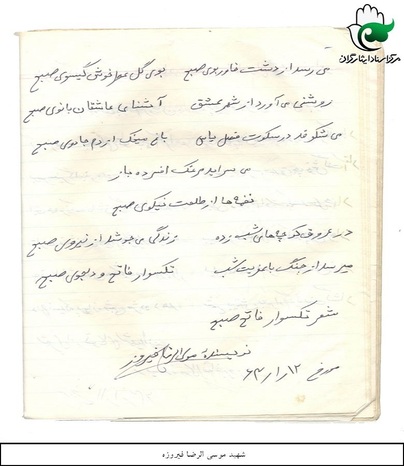 مرکز اسناد ایثارگران
می رسد از دشت خاور بوی صبح بوی گل عطر خوش گیسوی صبح
روشنی می آورد از شهر عشق آشنای عاشقان بانوی صبح
می شکوفد در سکوت فصل یاس باغ سبزینک از دم جادوی صبح
می سراید مرغک افسرده باز
نغمه ها از طلعت نیکوی صبح
در عروق کوچه های شب زده زندگی می جوشد از نیروی صبح
میرسد از جنگ با عفریت شب تکسوار فاتح و دلجوی صبح
شعر تکسوار فاتح صبح
نویسنده موسی الرضا فیروزه
مورخ ۶۳/۱/۱۲
شهید موسی الرضا فیروزه